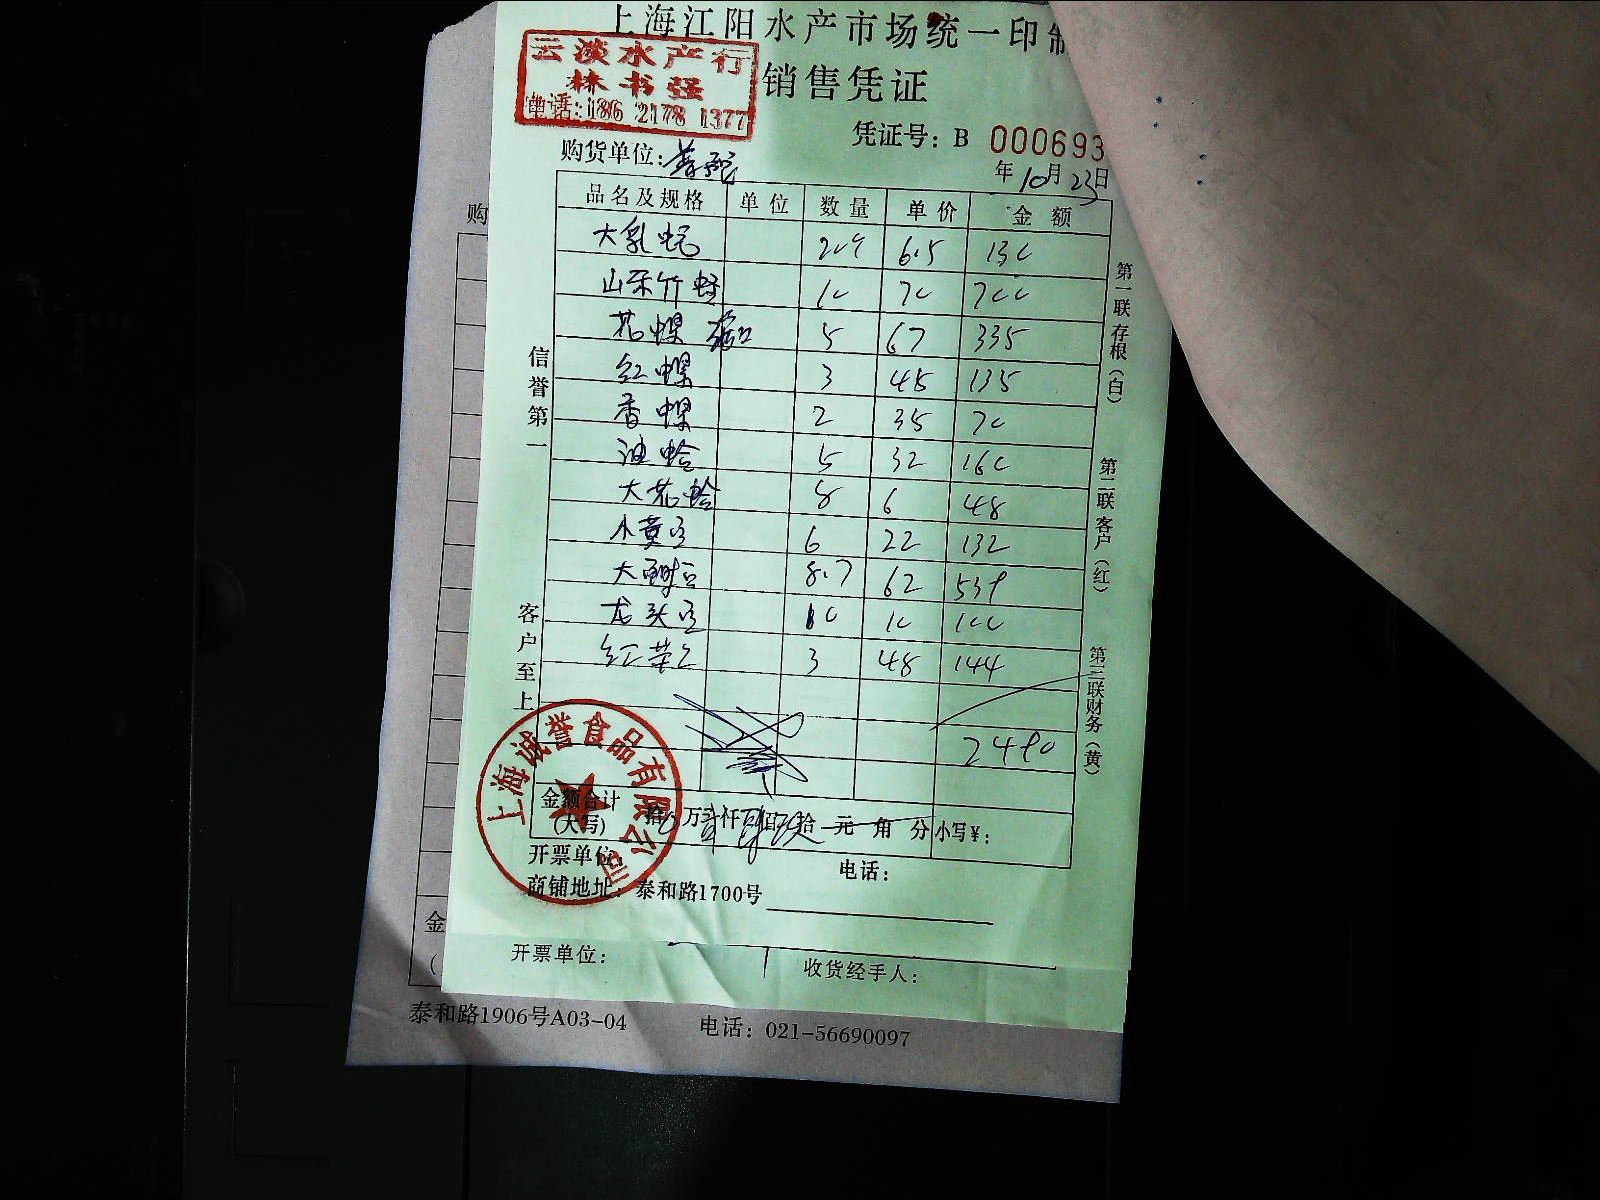 上海江阳水产市场统一印制
云淡水产行
林书强
电话:186 2178 1377
销售凭证
凭证号: B 000693
购货单位:
年10月23日
品名及规格 单位 数量 单价 金额
大乳 6.5 130
山东竹蛏 10 70 700
花螺 5 67 335
红螺 3 45 135
香螺 2 35 70
油蛤 5 32 160
大花蛤 8 6 48
小黄 6 22 132
大 8.7 62 539
龙头 10 10 100
红 3 48 144
2490
信誉第一
客户至上
第一联存根(白)
第二联客户(红)
第三联财务(黄)
上海诚誉食品有限公司
金额合计
(大写) 拾 万 仟 佰 拾 元 角 分 小写¥:
开票单位:
电话:
商铺地址: 泰和路1700号
开票单位:
收货经手人:
购
金
(
泰和路1906号A03-04 电话: 021-56690097